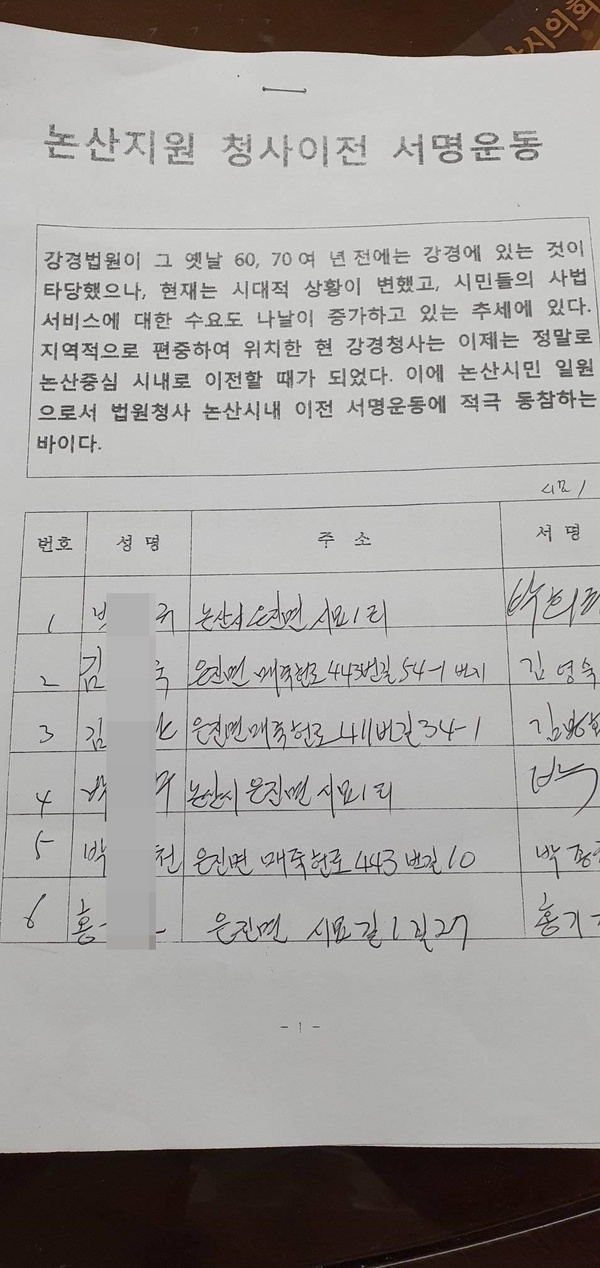 시의회
논산지원 청사이전 서명운동
강경법원이 그 옛날 60, 70여 년 전에는 강경에 있는 것이
타당했으나, 현재는 시대적 상황이 변했고, 시민들의 사법
서비스에 대한 수요도 나날이 증가하고 있는 추세에 있다.
지역적으로 편중하여 위치한 현 강경청사는 이제는 정말로
논산중심 시내로 이전할 때가 되었다. 이에 논산시민 일원
으로서 법원청사 논산시내 이전 서명운동에 적극 동참하는
바이다.
시묘1
번호 성명 주소 서명
1 박 논산시 은진면 시묘1리 박희
2 김 숙 은진면 매죽헌로443번길 54-1 번지 김영숙
3 김 은진면 매죽헌로 411번길 34-1 김
4 박 논산시 은진면 시묘1리 박
5 박 천 은진면 매죽헌로 443번길 10 박종
6 홍 은진면 시묘길1길27 홍기
- 1 -